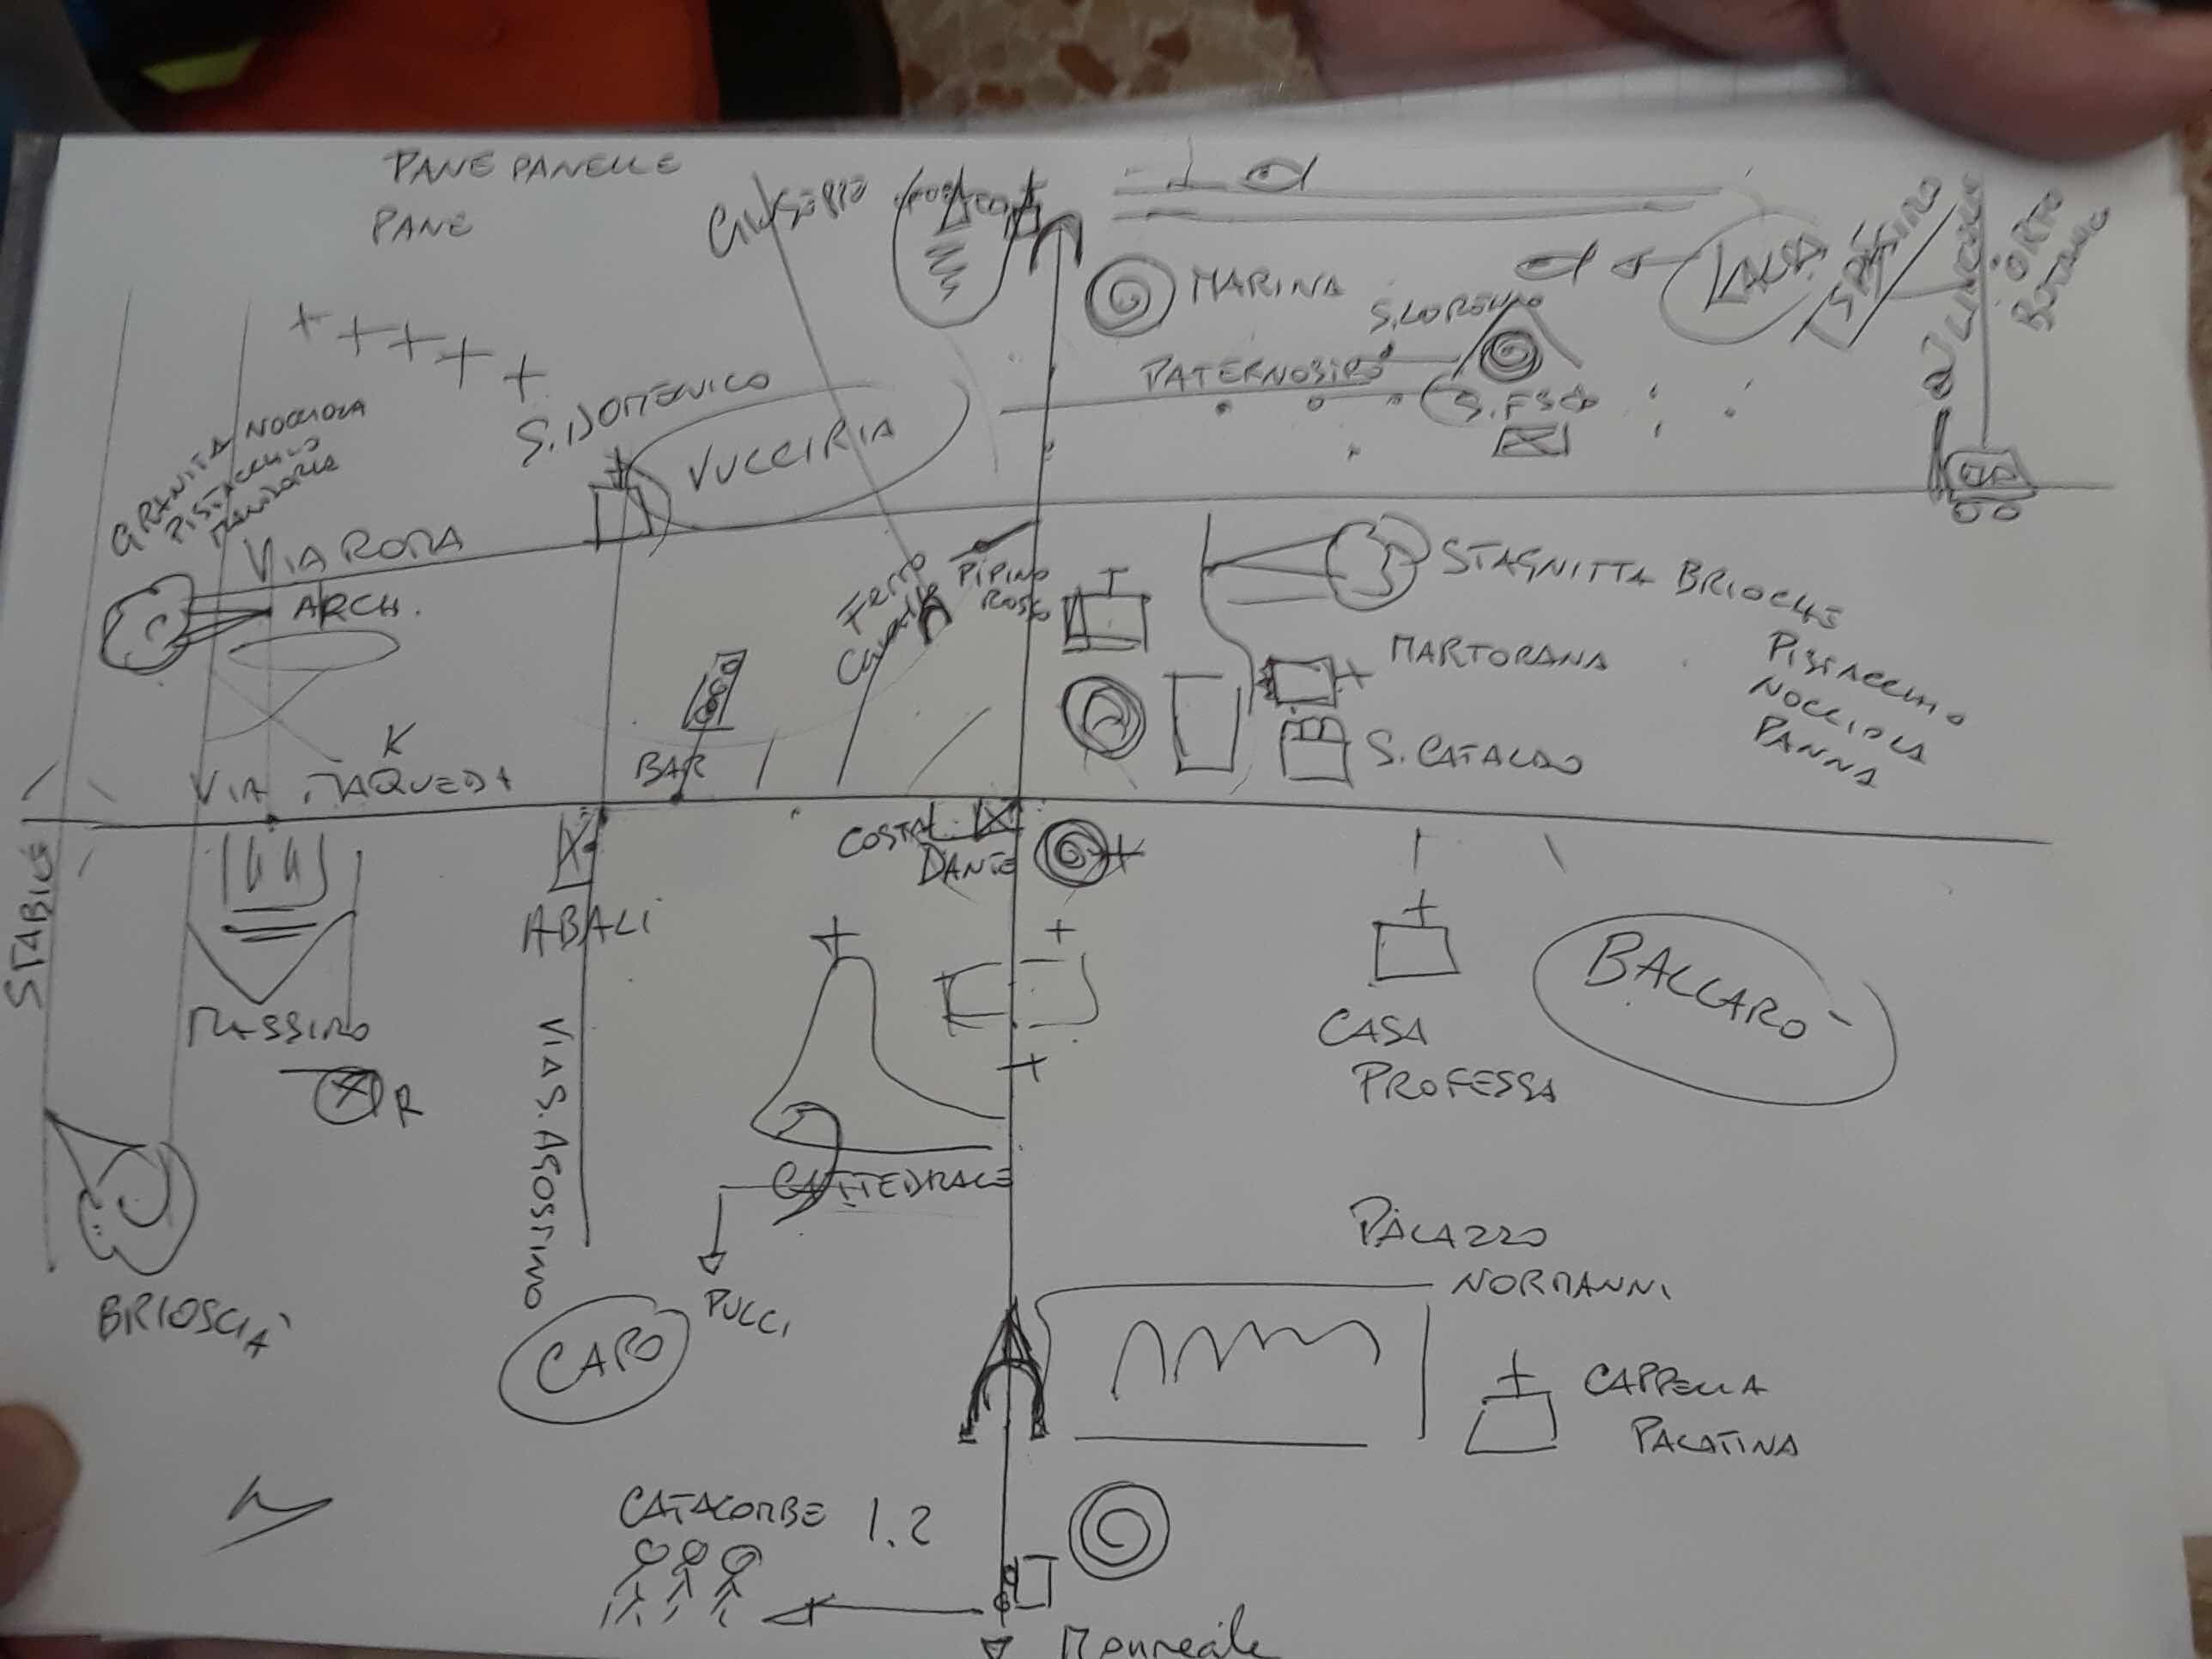 PANE PANELLE
PANE
MARINA
S. LORENZO
PATERNOSTRO
S. FSCO
ORTO
S. DOMENICO
VUCCIRIA
GRANITA NOCCIOLA
PISTACCHIO
MANDORLA
VIA ROMA
ARCH.
PIPINO
ROSSO
STAGNITTA BRIOCHE
PISTACCHIO
NOCCIOLA
PANNA
MARTORANA
S. CATALDO
K
VIA MAQUEDA
BAR
COSTA
DANTE
STABILE
ABALI
MASSIMO
R
VIA S. AGOSTINO
CASA
PROFESSA
BALLARO`
CATTEDRALE
PUCCI
BRIOSCIA`
CAPO
PALAZZO
NORMANNI
CAPPELLA
PALATINA
CATACOMBE 1.2
Monreale